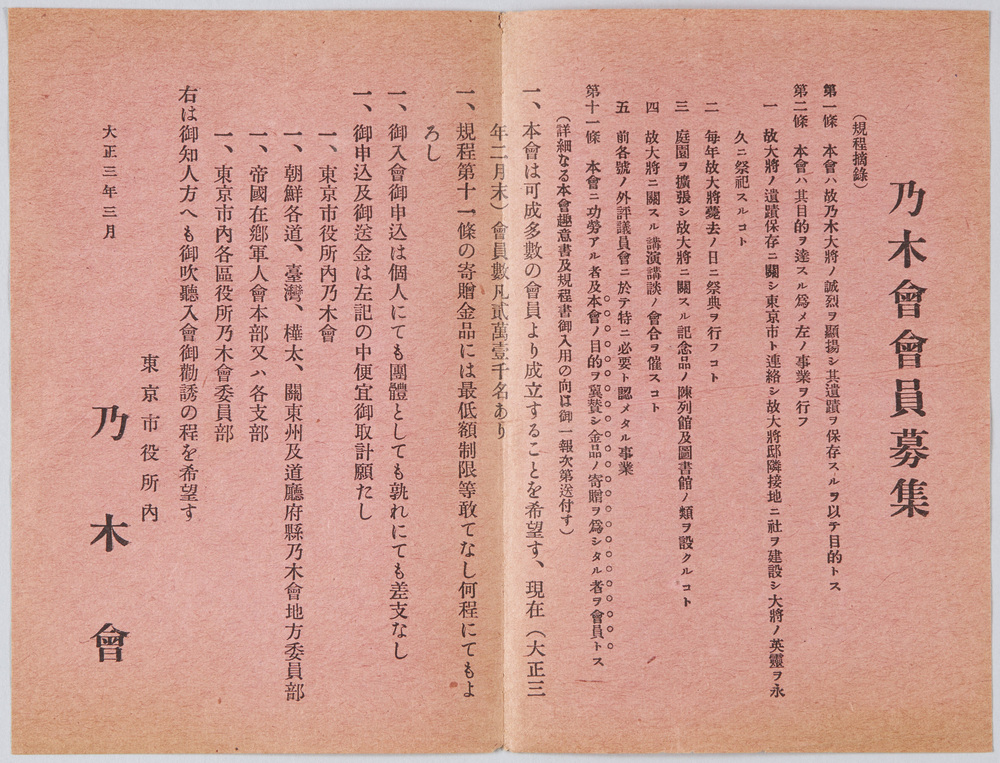 乃木會會員募集
（規程摘錄）
第一條　本會ハ故乃木大將ノ誠烈ヲ顯揚シ其遺蹟ヲ保存スルヲ以テ目的トス
第二條　本會ハ其目的ヲ達スル爲メ左ノ事業ヲ行フ
一　故大將ノ遺蹟保存ニ關シ東京市ト連絡シ故大將邸隣接地ニ社ヲ建設シ大將ノ英靈ヲ永
久ニ祭祀スルコト
二　每年故大將薨去ノ日ニ祭典ヲ行フコト
三　庭園ヲ擴張シ故大將ニ關スル記念品ノ陳列館及圖書館ノ類ヲ設クルコト
四　故大將ニ關スル講演講談ノ會合ヲ催スコト
五　前各號ノ外評議員會ニ於テ特ニ必要ト認メタル事業
第十一條　本會ニ功勞アル者及本會ノ目的ヲ翼賛シ金品ノ寄贈ヲ爲シタル者ヲ會員トス
（詳細なる本會趣意書及規程書御入用の向は御一報次第送付す）
一、本會は可成多數の會員より成立することを希望す、現在（大正三
年二月末）會員數凡貳萬壹千名あり
一、規程第十一條の寄贈金品には最低額制限等敢てなし何程にてもよ
ろし
一、御入會御申込は個人にても團體としても孰れにても差支なし
一、御申込及御送金は左記の中便宜御取計願たし
一、東京市役所內乃木會
一、朝鮮各道、臺灣、樺太、關東州及道廳府縣乃木會地方委員部
一、帝國在鄕軍人會本部又ハ各支部
一、東京市內各區役所乃木會委員部
右は御知人方へも御吹聽入會御勸誘の程を希望す
大正三年三月
東京市役所內
乃木會